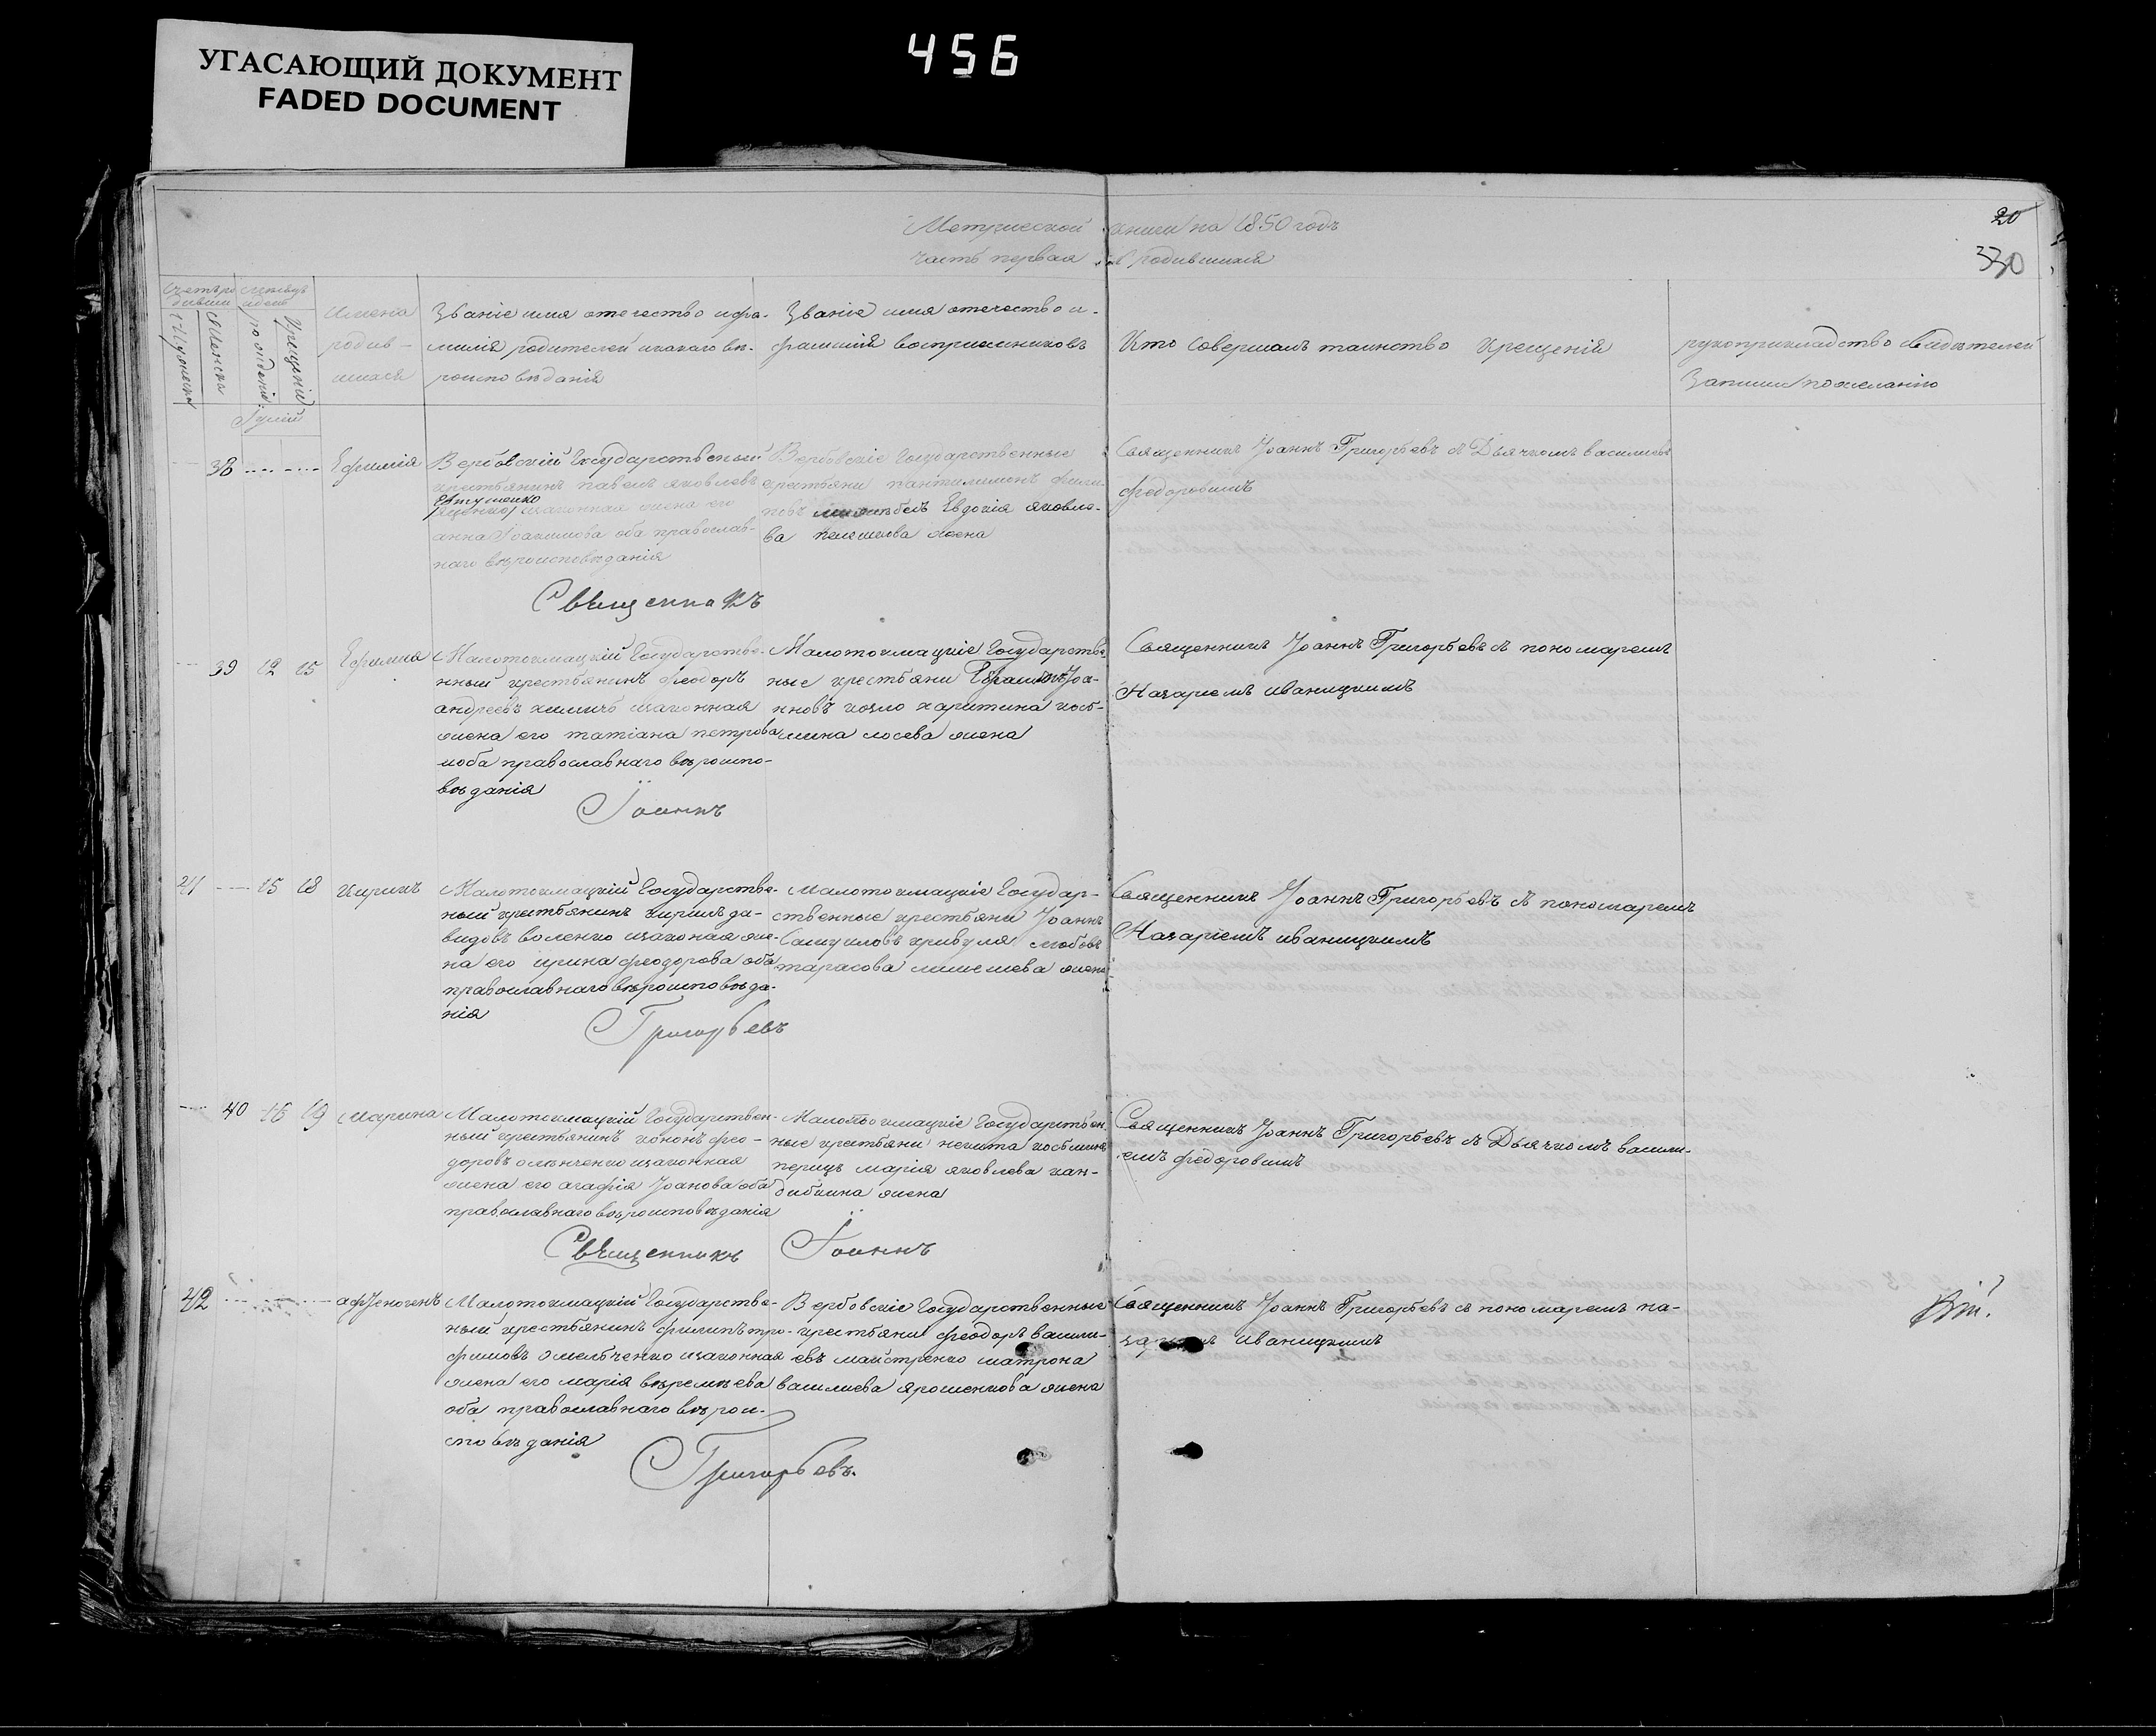 УГАСАЮЩИЙ ДОКУМЕНТ
FADED DOCUMENT
456
20
330
Метрической книги на 1850 годъ
часть первая о родившихся
Имена
родив-
шихся
Званіе имя отечество и фа-
милія родителей и какаго вѣ-
роисповѣданія
Званіе имя отечество и
фамилія воспріемниковъ
Кто Совершалъ таинство Крещенія
рукоприкладство Свидѣтелей
Записи по желанію
Мужеска
Женска
рожденія
Крещенія
38
Ефимія
Вербовскій Государственный
крестьянинъ павелъ яковлевъ
Евтушенко
изаконная жена его
анна Іоакимова оба православ-
наго вѣроисповѣданія
Вербовскіе Государственные
крестьяни пантилимонъ фили-
повъ Евдокія яковле-
ва жена
Священникъ Іоаннъ Григорьевъ съ Дьячкомъ василіемъ
федоровымъ
Свѣщенникъ
39 12 15 Ефимия
Малотокмацкій Государстве-
нный крестьянинъ феодоръ
андреевъ изаконная
жена его татіана петрова
иоба православнаго вѣроиспо-
вѣданія
Малотокмацкіе Государстве
ные крестьяни Іоа-
нновъ козло харитина косъ-
мина лосева жена
Священникъ Іоаннъ Григорьевъ съ пономаремъ
Назаріемъ иваницкимъ
Іоаннъ
41 15 18 Кирилъ
Малотокмацкій Государстве-
ный крестьянинъ кирилъ да-
видовъ воленко изаконая же-
на его ирина феодорова оба
православнаго вѣроисповѣда-
нія
Малотокмацкіе Государ-
ственные крестьяни Іоаннъ
Самуиловъ кривуля любовь
тарасова жена
Священникъ Іоаннъ Григорьевъ съ пономаремъ
Назаріемъ иваницкимъ
Григорьевъ
40 16 19 Марина
Малотокмацкій Государствен-
ный крестьянинъ кононъ фео-
доровъ изаконная
жена его агафія Іоанова оба
православнаго вѣроисповѣданія
Малотокмацкіе Государствен
ные крестьяни никита косьминъ
перицъ марія яковлева кан-
дибина жена
Священникъ Іоаннъ Григорьевъ съ Дьячкомъ васили-
емъ федоровымъ
Свѣщенникъ Іоаннъ
42
афѣногенъ
Малотокмацкій Государстве-
ный крестьянинъ филипъ тро-
фимовъ омельченко изаконная
жена его марія
оба православнаго вѣрои-
сповѣданія
Вербовскіе Государственные
крестьяни феодоръ васили-
евъ майстренко матрона
василиева ярошенкова жена
Священникъ Іоаннъ Григорьевъ съ пономаремъ на-
иваницкимъ
Григорьевъ.